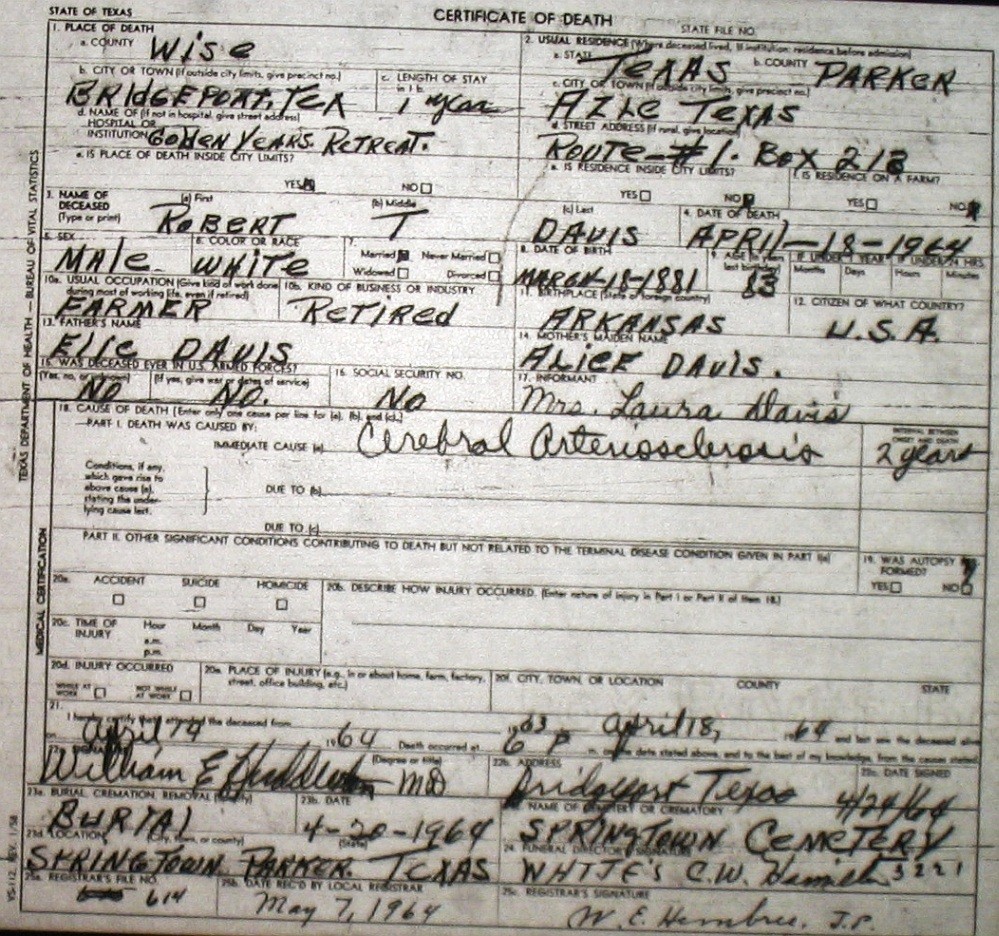 STATE OF TEXAS
CERTIFICATE OF DEATH
STATE FILE NO.
1. PLACE OF DEATH
a. COUNTY Wise
2. USUAL RESIDENCE (Where deceased lived, If institution: residence before admission)
a. STATE TEXAS b. COUNTY PARKER
b. CITY OR TOWN (If outside city limits, give precinct no.)
BRIDGEPORT, TEX
c. LENGTH OF STAY in 1 b.
1 year
c. CITY OR TOWN (If outside city limits, give precinct no.)
AZLE TEXAS
d. NAME OF (If not in hospital, give street address) HOSPITAL OR INSTITUTION GOLDEN YEARS. RETREAT.
d. STREET ADDRESS (If rural, give location)
ROUTE-#1. BOX 213
e. IS PLACE OF DEATH INSIDE CITY LIMITS?
YES NO
e. IS RESIDENCE INSIDE CITY LIMITS?
YES NO
f. IS RESIDENCE ON A FARM?
YES NO
3. NAME OF DECEASED (Type or print)
(a) First (b) Middle (c) Last
ROBERT T DAVIS
4. DATE OF DEATH
APRIL-18-1964
5. SEX
MALE
6. COLOR OR RACE
WHITE
7. Married Never Married
Widowed Divorced
8. DATE OF BIRTH
MARCH-18-1881
9. AGE (In years last birthday)
83
IF UNDER 1 YEAR IF UNDER 24 HRS.
Months Days Hours Minutes
10a. USUAL OCCUPATION (Give kind of work done during most of working life, even if retired)
FARMER
10b. KIND OF BUSINESS OR INDUSTRY
RETIRED
11. BIRTHPLACE (State or foreign country)
ARKANSAS
12. CITIZEN OF WHAT COUNTRY?
U.S.A.
13. FATHER'S NAME
DAVIS
14. MOTHER'S MAIDEN NAME
ALICE DAVIS.
15. WAS DECEASED EVER IN U.S. ARMED FORCES?
(Yes, no, or unknown) (If yes, give war or dates of service)
NO NO.
16. SOCIAL SECURITY NO.
NO
17. INFORMANT
Mrs. Laura Davis
18. CAUSE OF DEATH [Enter only one cause per line for (a), (b), and (c).]
PART I. DEATH WAS CAUSED BY:
IMMEDIATE CAUSE (a) Cerebral Arteriosclerosis
INTERVAL BETWEEN ONSET AND DEATH
2 years
Conditions, if any, which gave rise to above cause (a), stating the underlying cause last.
DUE TO (b)
DUE TO (c)
PART II. OTHER SIGNIFICANT CONDITIONS CONTRIBUTING TO DEATH BUT NOT RELATED TO THE TERMINAL DISEASE CONDITION GIVEN IN PART I(a)
19. WAS AUTOPSY PERFORMED?
YES NO
20a. ACCIDENT SUICIDE HOMICIDE
20b. DESCRIBE HOW INJURY OCCURRED. (Enter nature of injury in Part I or Part II of Item 18.)
20c. TIME OF INJURY Hour Month Day Year
a.m.
p.m.
20d. INJURY OCCURRED
WHILE AT WORK NOT WHILE AT WORK
20e. PLACE OF INJURY (e.g., in or about home, farm, factory, street, office building, etc.)
20f. CITY, TOWN, OR LOCATION COUNTY STATE
21.
I hereby certify that I attended the deceased from 1963 April 18, 1964 and last saw the deceased alive
on April 14 1964 Death occurred at 6 P m. on the date stated above, and to the best of my knowledge, from the causes stated.
22a. SIGNATURE (Degree or title)
William E MD
22b. ADDRESS
Bridgeport Texas
22c. DATE SIGNED
4/24/64
23a. BURIAL, CREMATION, REMOVAL (Specify)
BURIAL
23b. DATE
4-20-1964
23c. NAME OF CEMETERY OR CREMATORY
SPRINGTOWN CEMETERY
23d. LOCATION (City, town, or county) (State)
SPRINGTOWN PARKER TEXAS
24. FUNERAL DIRECTOR'S SIGNATURE
WHITE'S C.W. 3221
25a. REGISTRAR'S FILE NO.
614
25b. DATE REC'D BY LOCAL REGISTRAR
May 7, 1964
25c. REGISTRAR'S SIGNATURE
W. E. Hembree, J.P.
TEXAS DEPARTMENT OF HEALTH — BUREAU OF VITAL STATISTICS
MEDICAL CERTIFICATION
VS-112, REV. 1/58